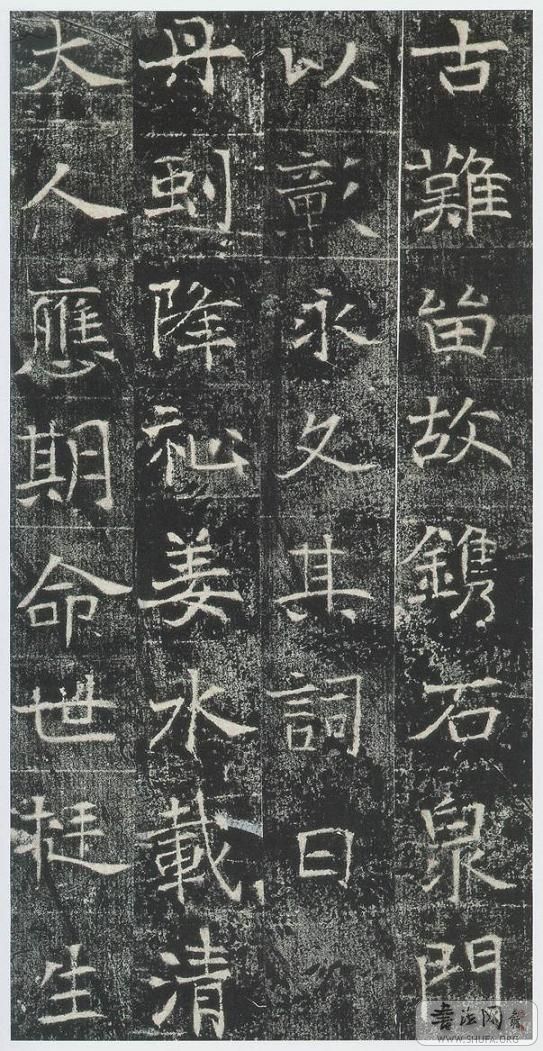 古難畄故鐫石泉門
以彰永久其詞曰
丹降祉姜水載清
大人應期命世挺生
书法网
WWW.SHUFA.ORG